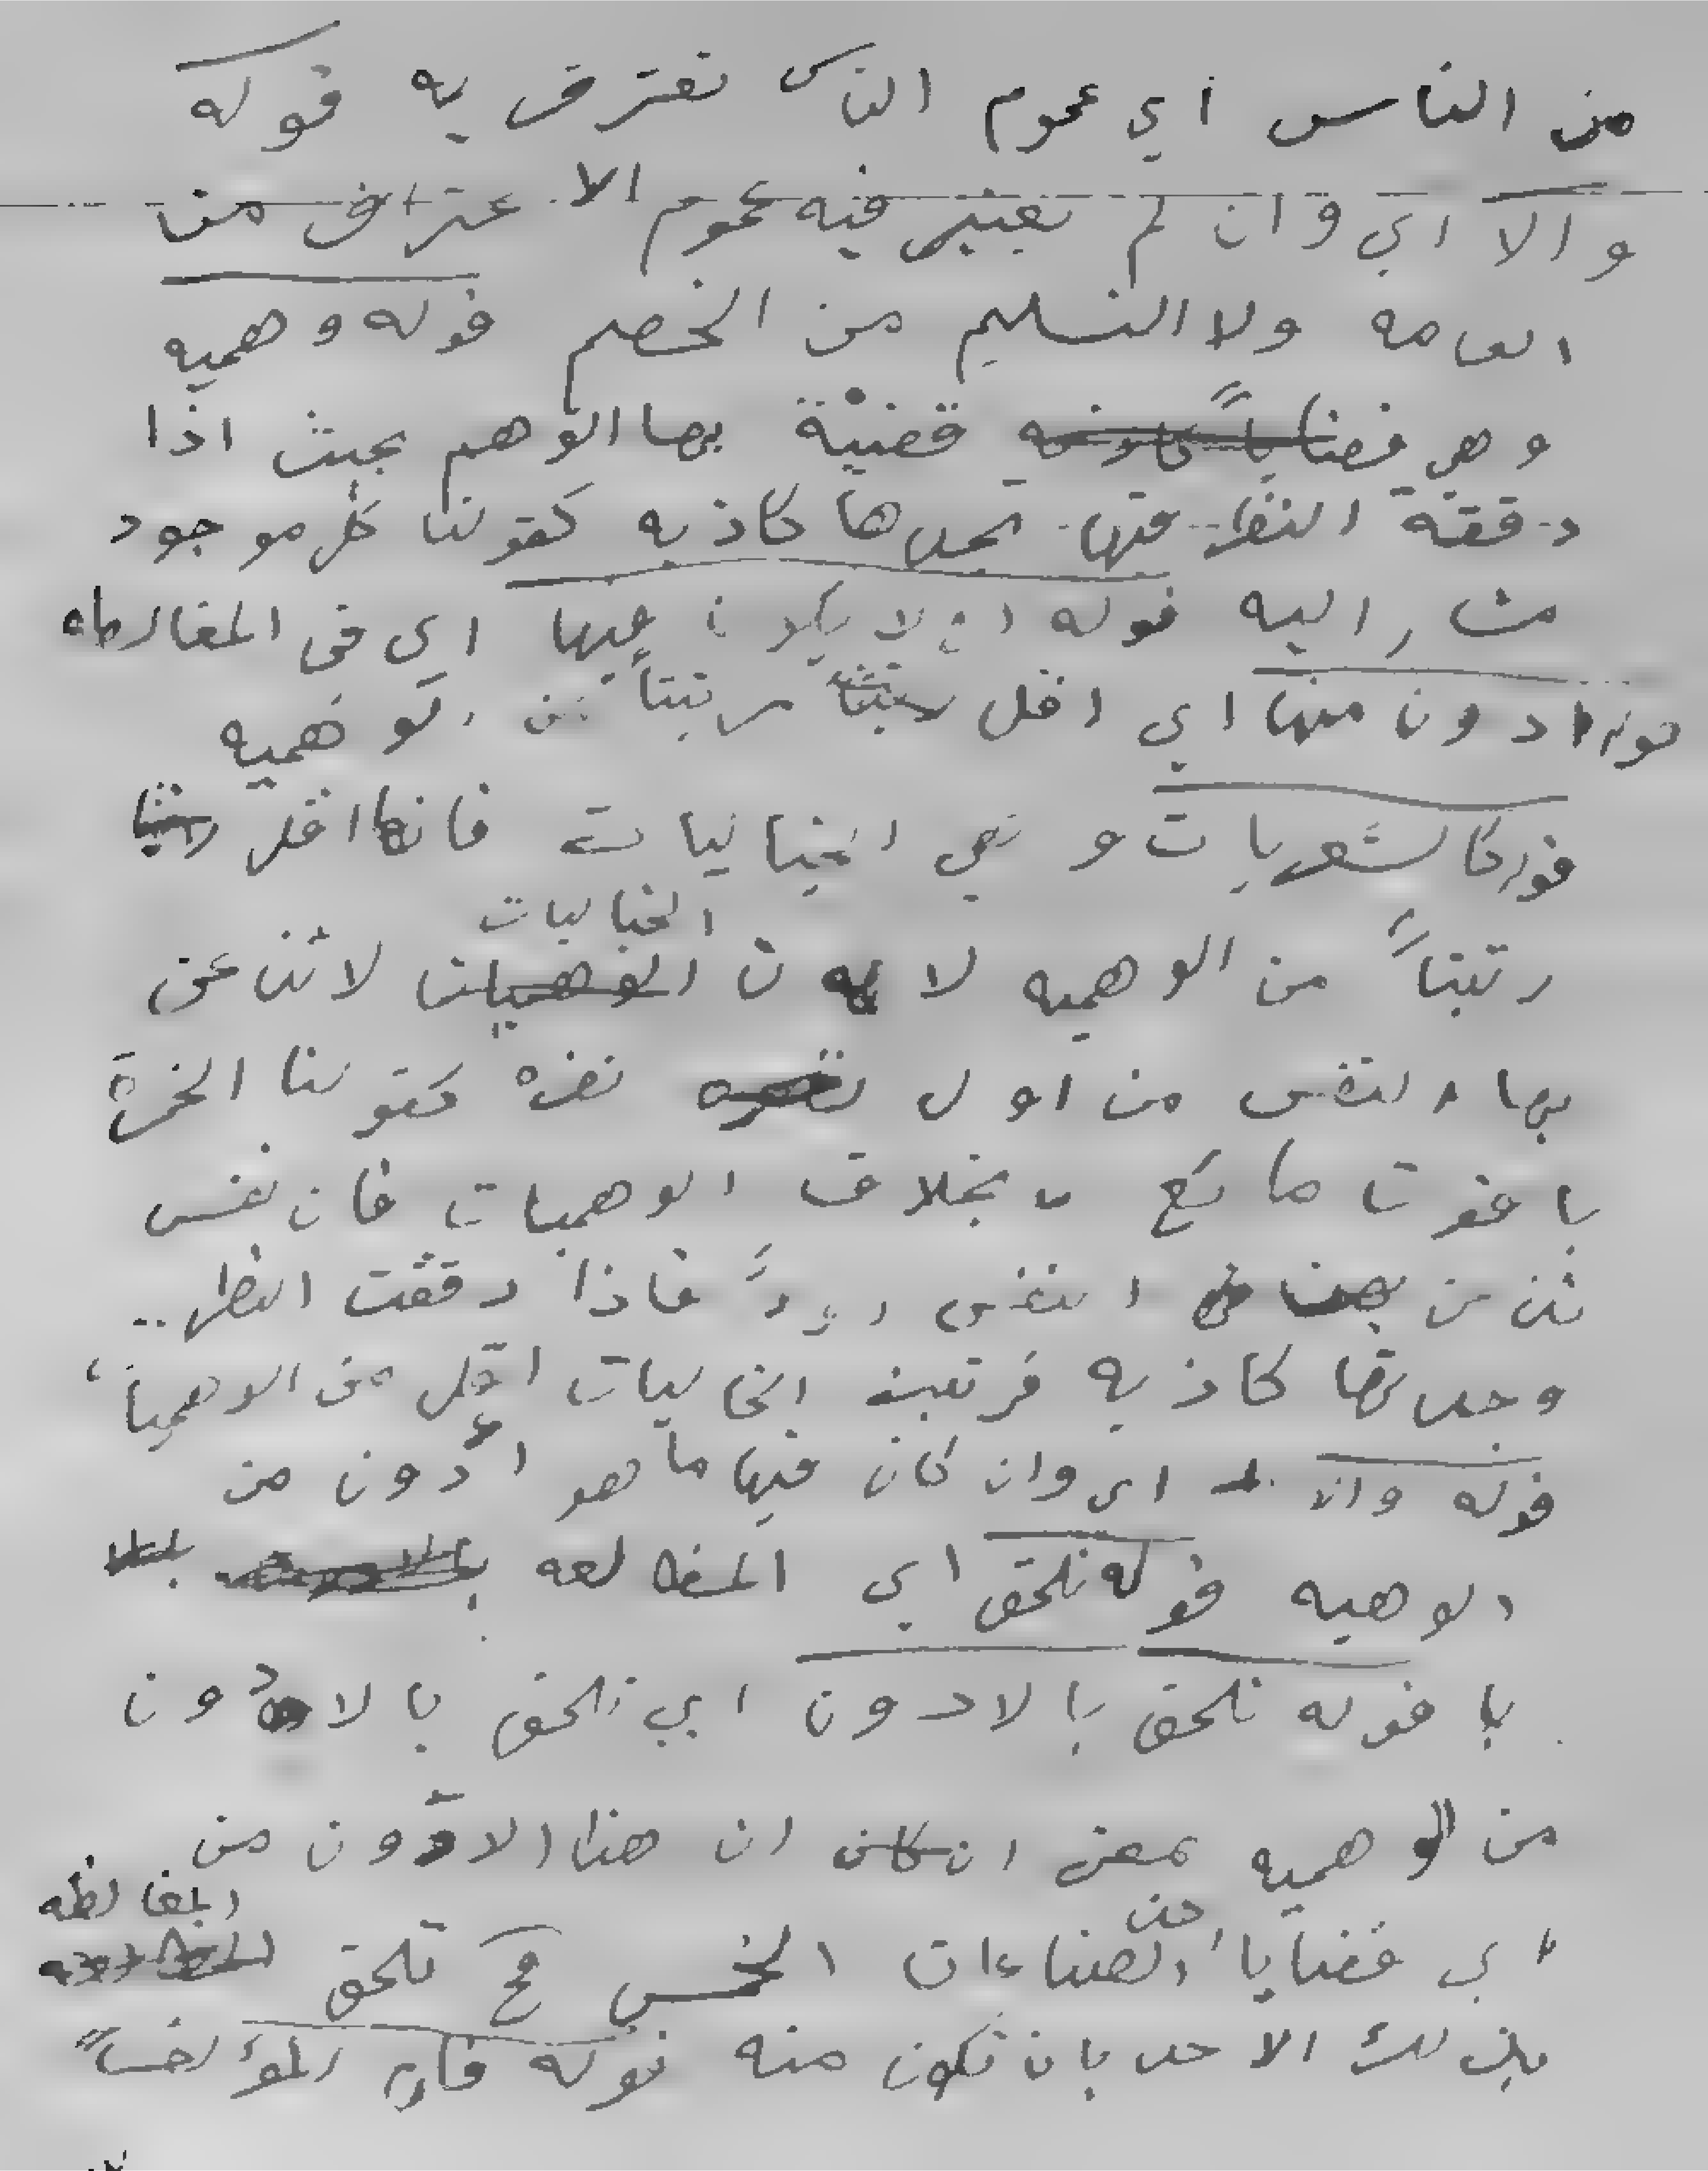 من الناس اي عموم الناس تعترف به قوله
والا اي وان لم يعتبر فيه عموم الاعتراف من
العامه ولا التسليم من الخصم قوله وهميه
وهي قضية بها الوهم بحيث اذا
دققة النظر فيها تجدها كاذبه كقولنا كل موجود
مشار اليه قوله ان لا يكون فيها اي في المغالطه
قوله ادون منها اي اقل رتبتاً من الوهميه
قوله كالشعريات وهي الخياليات فانها اقل
رتبتاً من الوهميه لان الخياليات لا تذعن
بها النفس من اول كقولنا الخمرة
ياقوتة بخلاف الوهميات فان نفس
تذعن النفس فاذا دققت النظر
وجدتها كاذبه فرتبة الخاليات اقل من الوهميات
قوله والا اي وان كان فيها ما هو أدون من
الوهيه قوله تلحق اي
با قوله تلحق بالادون اي تلحق بالادون
من الوهميه بمعنى ان هذا الادون من
اي قضايا من الصناعات الخمس فح تلحق المغالطه
بذلك الاحد بان تكون منه قوله فان المؤلف